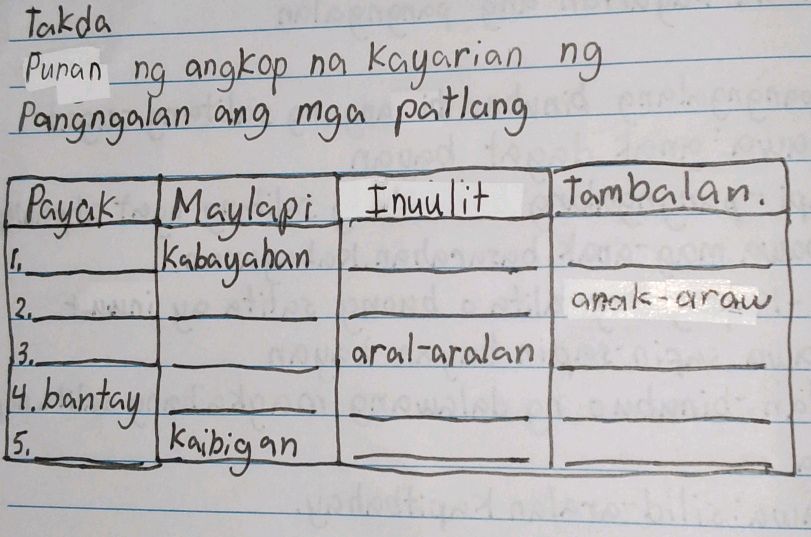 Takda
Punan ng angkop na Kayarian ng
Pangngalan ang mga patlang
Payak Maylapi Inuulit Tambalan.
1. Kabayahan
2. anak-araw
3. aral-aralan
4. bantay
5. Kaibigan